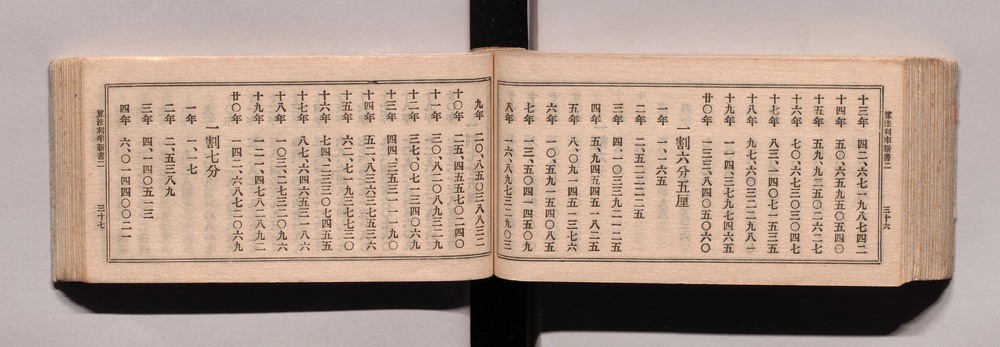 算法利率新書二 三十六
十三年 四二、六七一九八七四二
十四年 五〇、六五九五〇五四〇
十五年 五九、九二五〇二六二七
十六年 七〇、六七三〇三〇四七
十七年 八三、一四〇七一五三五
十八年 九七、六〇三二二九八一
十九年 一一四、三七九七四六五
廿〇年 一三三、八四〇五〇六〇
一割六分五厘
一年 一、一六五
二年 二、五二二二二五
三年 四、一〇三三九二一二五
四年 五、九四五四五一八二五
五年 八、〇九一四五一三七六
六年 一〇、五九一五四〇八五
七年 一三、五〇四一四五〇九
八年 一六、八九七三二九〇三
九年 二〇、八五〇三八八三二
十〇年 二五、四五五七〇二四〇
十一年 三〇、八二〇八九三二九
十二年 三七、〇七一三四〇六九
十三年 四四、三五三一一一九〇
十四年 五二、八三六三七五三六
十五年 六二、七一九三七七三〇
十六年 七四、二三三〇七四五五
十七年 八七、六四六五三一八六
十八年 一〇三、二七三二〇九六
十九年 一二一、四七八二八九二
廿〇年 一四二、六八七二〇六九
一割七分
一年 一、一七
二年 二、五三八九
三年 四、一四〇五一三
四年 六、〇一四四〇〇二一
算法利率新書二 三十七